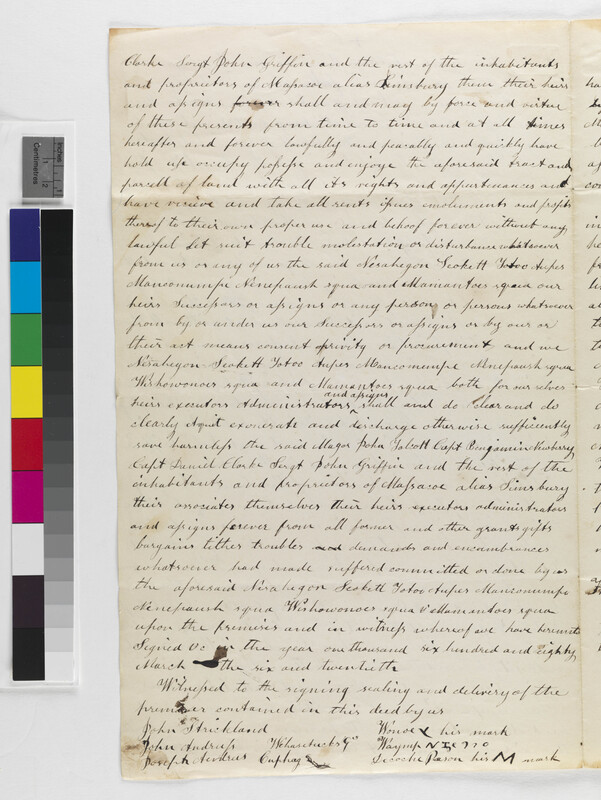 Clarke Sergt John Griffin and the rest of the inhabitants
and proprietors of Massacoe alias Simsbury them their heirs
and assigns forever shall and may by force and virtue
of these presents from time to time and at all times
hereafter and forever lawfully and peacably and quickly have
hold use occupy possess and enjoye the aforesaid tract and
parcell of land with all its rights and appurtenances and
have receive and take all rents issues emoluments and profits
thereof to their own proper use and behoof forever without any
lawful let suit trouble molestation or disturbance whatsoever
from us or any of us the said Nesahegon Seokett Totoo Aupes
Manconumpe Ninepaush squa and Mamantoes squa our
heirs Successors or assigns or any person or persons whatsoever
from by or under us our Successors or assigns or by our or
their act means consent privity or procurement and we
Nesahegon Seokett Totoo Aupes Manconumpe Mnepaush squa
Wishowonoes squa and Mamantoes squa both for ourselves
heirs executors Administrators and assigns shall and do clear and do
clearly Aquit exonerate and discharge otherwise sufficiently
save harmless the said Major John Talcott Capt Benjamin Newberry
Capt Daniel Clarke Sergt John Griffin and the rest of the
inhabitants and proprietors of Massacoe alias Simsbury
their associates themselves their heirs executors administrators
and assigns forever from all former and other grants gifts
bargains titles troubles and demands and encumbrances
whatsoever had made suffered committed or done by us
the aforesaid Nesahegon Seokett Totoo Aupes Manconumpe
Nenepaush squa Wishowonoes squa & Mamantoes squa
upon the premises and in witness whereof we have hereunto
Signed &c in the year one thousand six hundred and eighty
March the six and twentieth
Witnessed to the signing sealing and delivery of the
premises contained in this deed by us
John Strickland Wonoe X his mark
John Andruss
Joseph Nevdrus Cuphag his M mark